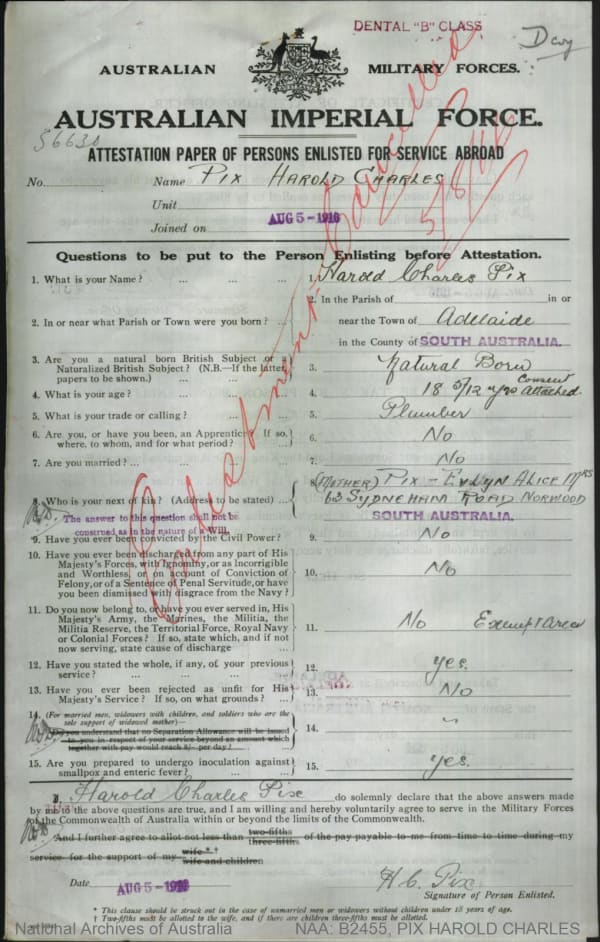 DENTAL "B" CLASS
AUSTRALIAN MILITARY FORCES.
AUSTRALIAN IMPERIAL FORCE.
56630
ATTESTATION PAPER OF PERSONS ENLISTED FOR SERVICE ABROAD
No. Name PIX HAROLD CHARLES
Unit
Joined on AUG 5-1918
Enlistment Cancelled
5/8/18
Questions to be put to the Person Enlisting before Attestation.
1. What is your Name? ... ... ... 1. Harold Charles Pix
2. In the Parish of in or
2. In or near what Parish or Town were you born? ... near the Town of Adelaide
in the County of SOUTH AUSTRALIA.
3. Are you a natural born British Subject or a
Naturalized British Subject? (N.B.—If the latter,
papers to be shown.) ... ... 3. Natural Born
4. What is your age? ... ... ... 4. 18 5/12 yrs Consent Attached.
5. What is your trade or calling? ... ... 5. Plumber
6. Are you, or have you been, an Apprentice? If so,
where, to whom, and for what period? ... 6. No
7. Are you married? ... ... ... 7. No
8. Who is your next of kin? (Address to be stated) ... 8. (MOTHER) PIX - EVLYN ALICE MRS
63 SYDNEHAM ROAD NORWOOD
SOUTH AUSTRALIA.
The answer to this question shall not be
construed as in the nature of a Will.
9. Have you ever been convicted by the Civil Power? ... 9. No
10. Have you ever been discharged from any part of His
Majesty's Forces, with Ignominy, or as Incorrigible
and Worthless, or on account of Conviction of
Felony, or of a Sentence of Penal Servitude, or have
you been dismissed with disgrace from the Navy? 10. No
11. Do you now belong to, or have you ever served in, His
Majesty's Army, the Marines, the Militia, the
Militia Reserve, the Territorial Force, Royal Navy
or Colonial Forces? If so, state which, and if not
now serving, state cause of discharge ... 11. No Exempt Area
12. Have you stated the whole, if any, of your previous
service? ... ... ... ... 12. yes.
13. Have you ever been rejected as unfit for His
Majesty's Service? If so, on what grounds? ... 13. No
14. (For married men, widowers with children, and soldiers who are the
sole support of widowed mother)—
Do you understand that no Separation Allowance will be issued
to you in respect of your service beyond an amount which
together with pay would reach 8/- per day? ... 14. "
15. Are you prepared to undergo inoculation against
smallpox and enteric fever? ... ... 15. yes.
I, Harold Charles Pix do solemnly declare that the above answers made
by me to the above questions are true, and I am willing and hereby voluntarily agree to serve in the Military Forces
of the Commonwealth of Australia within or beyond the limits of the Commonwealth.
And I further agree to allot not less than two-fifths three-fifths of the pay payable to me from time to time during my
service for the support of my wife *† wife and children
Date AUG 5-1918 H C. Pix
Signature of Person Enlisted.
* This clause should be struck out in the case of unmarried men or widowers without children under 18 years of age.
† Two-fifths must be allotted to the wife, and if there are children three-fifths must be allotted.
National Archives of Australia NAA: B2455, PIX HAROLD CHARLES